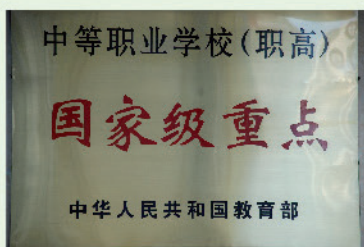 中等职业学校(职高)
国家级重点
中华人民共和国教育部